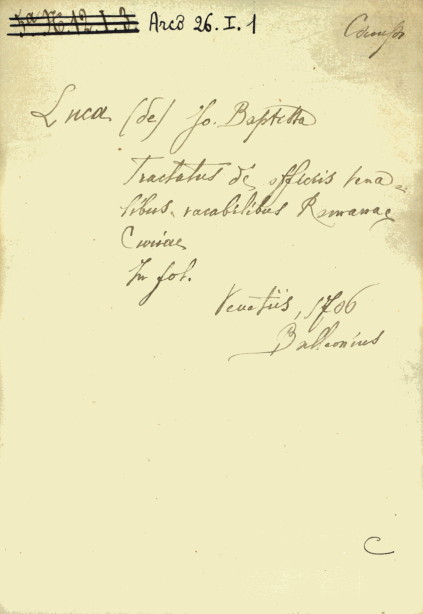 Arc8 26.I.1
Luca (de) Jo. Baptista
Tractatus de officiis vena-
libus vacabilibus Romanae
Curiae
In fol.
Venetiis, 1706
Balleonius
C